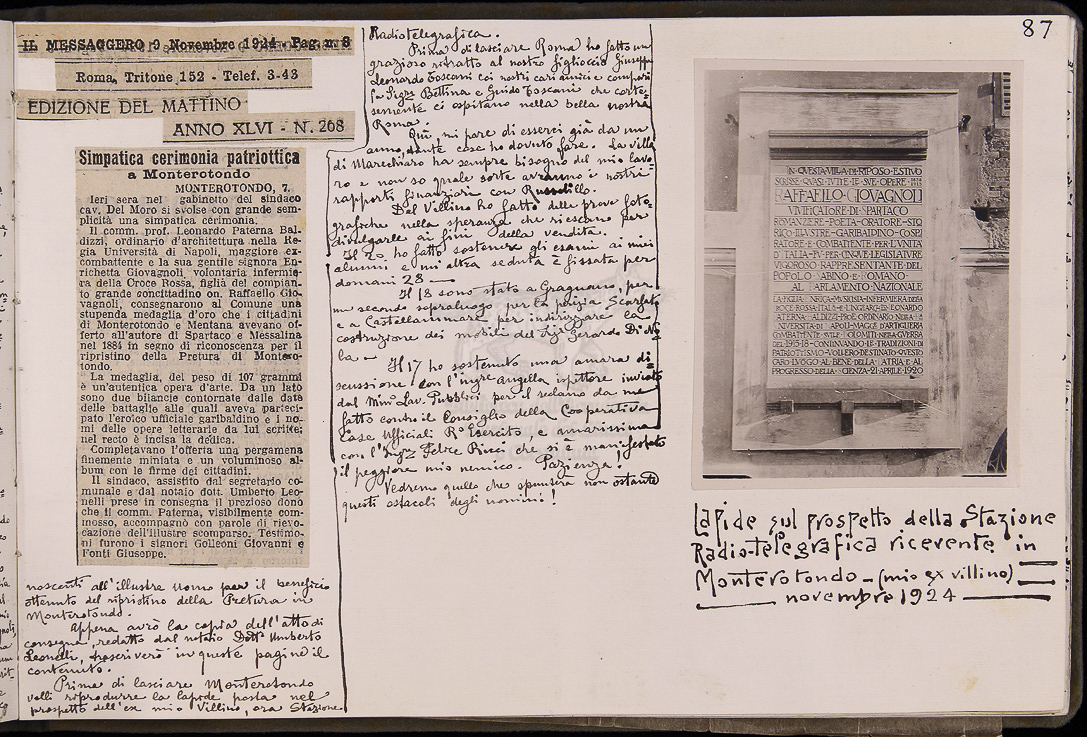 87
IL MESSAGGERO 9 Novembre 1924 - Pag. n. 8
Roma, Tritone 152 - Telef. 3-43
EDIZIONE DEL MATTINO
ANNO XLVI - N. 268
Simpatica cerimonia patriottica
a Monterotondo
MONTEROTONDO, 7.
Ieri sera nel gabinetto del sindaco
cav. Del Moro si svolse con grande sem-
plicità una simpatica cerimonia.
Il comm. prof. Leonardo Paterna Bal-
dizzi, ordinario d'architettura nella Re-
gia Università di Napoli, maggiore ex-
combattente e la sua gentile signora En-
richetta Giovagnoli, volontaria infermie-
ra della Croce Rossa, figlia del compian-
to grande concittadino on. Raffaello Gio-
vagnoli, consegnarono al Comune una
stupenda medaglia d'oro che i cittadini
di Monterotondo e Mentana avevano of-
ferto all'autore di Spartaco e Messalina
nel 1884 in segno di riconoscenza per il
ripristino della Pretura di Montero-
tondo.
La medaglia, del peso di 107 grammi
è un'autentica opera d'arte. Da un lato
sono due bilancie contornate dalla data
delle battaglie alle quali aveva parteci-
pato l'eroico ufficiale garibaldino e i no-
mi delle opere letterarie da lui scritte;
nel recto è incisa la dedica.
Completavano l'offerta una pergamena
finemente miniata e un voluminoso al-
bum con le firme dei cittadini.
Il sindaco, assistito dal segretario co-
munale e dal notaio dott. Umberto Leo-
nelli prese in consegna il prezioso dono
che il comm. Paterna, visibilmente com-
mosso, accompagnò con parole di rievo-
cazione dell'illustre scomparso. Testimo-
ni furono i signori Golleoni Giovanni e
Fonti Giuseppe.
noscenti all'illustre Uomo per il beneficio
ottenuto del ripristino della Pretura in
Monterotondo.
Appena avrò la copia dell'atto di
consegna, redatto dal notaio Dott. Umberto
Leonelli, trascriverò in queste pagine il
contenuto.
Prima di lasciare Monterotondo
volli riprodurre la lapide posta nel
prospetto dell'ex mio Villino, ora Stazione
Radiotelegrafica.
Prima di lasciare Roma ho fatto un
grazioso ritratto al nostro figlioccio Giuseppe
Leonardo Toscani coi nostri cari amici e compari
la Sigra Bettina e Guido Toscani che corte-
semente ci ospitano nella bella nostra
Roma.
Qui, mi pare di esserci già da un
anno, tante cose ho dovuto fare. La villa
di Marechiaro ha sempre bisogno del mio lavo-
ro e non so quale sorte avranno i nostri
rapporti finanziari con Russolillo.
Del Villino ho fatto delle prove foto-
grafiche nella speranza che riescano per
divulgarle ai fini della vendita.
Il 20 ho fatto sostenere gli esami ai miei
alunni e un'altra seduta è fissata per
domani 28 —
Il 18 sono stato a Gragnano, per
un secondo sopraluogo per la perizia Scarfato
e a Castellammare per indirizzare la
costruzione dei mobili del Sig. Gerardo Di No-
la. —
Il 17 ho sostenuto una amara di-
scussione con l'ingre Angella ispettore inviato
dal Min. Lav. Pubblici per il reclamo da me
fatto contro il Consiglio della Cooperativa
Case Ufficiali Ro Esercito, e amarissima
con l'ingre Felice Ricci che si è manifestato
il peggiore mio nemico. Pazienza!
Vedremo quello che spunterà non ostante
questi ostacoli degli uomini!
IN QUESTA VILLA DI RIPOSO ESTIVO
SCRISSE QUASI TUTTE LE SUE OPERE
RAFFAELLO GIOVAGNOLI
VIVIFICATORE DI SPARTACO
ROMANZIERE POETA ORATORE STO
RICO ILLUSTRE GARIBALDINO COSPI
RATORE E COMBATTENTE PER L'UNITÀ
D'ITALIA FU PER CINQUE LEGISLATURE
VIGOROSO RAPPRESENTANTE DEL
POPOLO SABINO E ROMANO
AL PARLAMENTO NAZIONALE
LA FIGLIA ENRICA MUSICISTA INFERMIERA DELLA
CROCE ROSSA ITALIANA E L'INGEGNERE LEONARDO
PATERNA BALDIZZI PROF. ORDINARIO NELLA R.
UNIVERSITÀ DI NAPOLI MAGG. D'ARTIGLIERIA
COMBATTENTE VOLONTARIO NELLA GUERRA
DEL 1915-18 CONTINUANDO LE TRADIZIONI
PATRIOTTICHE VOLLERO DESTINATO QUESTO
CARO LUOGO AL BENE DELLA PATRIA E AL
PROGRESSO DELLA SCIENZA 21 APRILE 1920
Lapide sul prospetto della Stazione
Radio-telegrafica ricevente in
Monterotondo - (mio ex villino)
novembre 1924